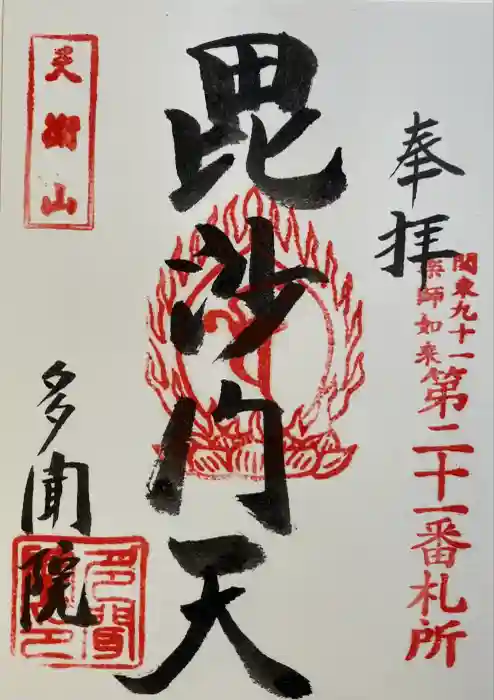 奉拝
関東九十一
薬師如来
第二十一番札所
毘沙門天
天衛山
多聞院